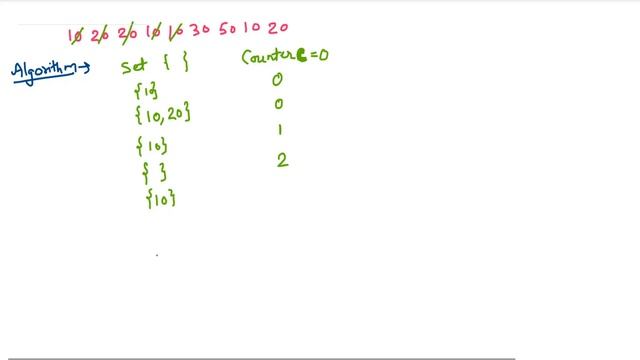 10 20 20 10 10 30 50 10 20
Algorithm→ Set { } Counter C=0
{10} 0
{10,20} 0
{10} 1
{ } 2
{10}